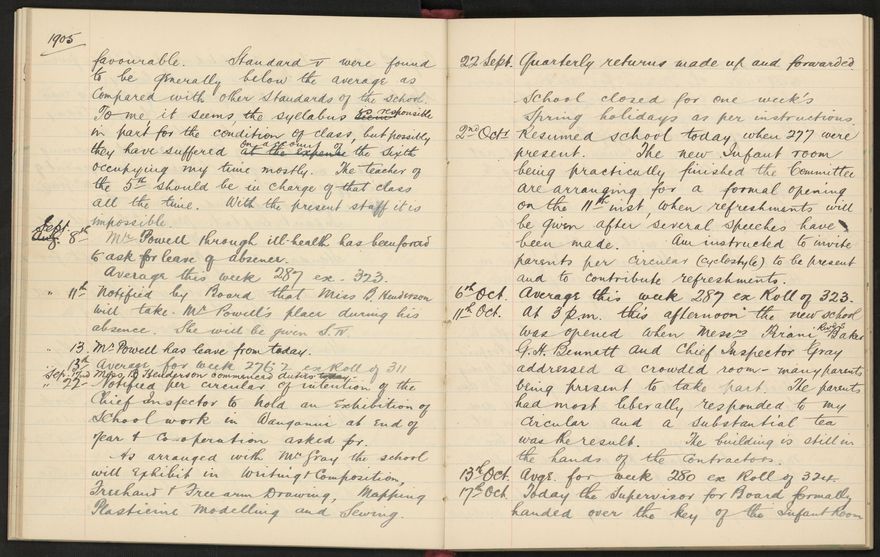 1905
favourable. Standard V were found
to be generally below the average as
compared with other standards of the school.
To me it seems, the syllabus is responsible
in part for the condition of class, but possibly
they have suffered at the expense on account of, the Sixth
occupying my time mostly. The teacher of
the 5th should be in charge of that class
all the time. With the present staff it is
impossible.
Sept. Aug. 8th Mr Powell through ill-health has been forced
to ask for leave of absence.
Average this week 287 ex. 323.
" 11th Notified by Board that Miss D. Henderson
will take Mr Powell's place during his
absence. She will be given S. IV
" 13. Mr Powell has leave from today.
" 15th Average for week 276.2 ex Roll of 311
Sep. 22nd Miss D. Henderson commenced duties today
" 22 Notified per circular of intention of the
Chief Inspector to hold an Exhibition of
School work in Wanganui at End of
year & Co-operation asked for.
As arranged with Mr Gray the school
will Exhibit in Writing & Composition,
Freehand & Free arm Drawing, Mapping
Plasticine Modelling and Sewing.
22 Sept. Quarterly returns made up and forwarded
School closed for one week's
Spring holidays as per instructions.
2nd Oct. Resumed school today when 277 were
present. The new Infant room
being practically finished the Committee
are arranging for a formal opening
on the 11th inst, when refreshments will
be given after several speeches have
been made. Am instructed to invite
parents per circular (cyclostyle) to be present
and to contribute refreshments.
6th Oct. Average this week 287 ex Roll of 323.
11th Oct. At 3 p.m. this afternoon the new school
was opened when Messrs Pirani Baker
G.H. Bennett and Chief Inspector Gray
addressed a crowded room - many parents
being present to take part. The parents
had most liberally responded to my
circular and a substantial tea
was the result. The building is still in
the hands of the contractors.
13th Oct. Avge. for week 280 ex Roll of 324.
17th Oct. Today the Supervisor for Board formally
handed over the key of the Infant Room